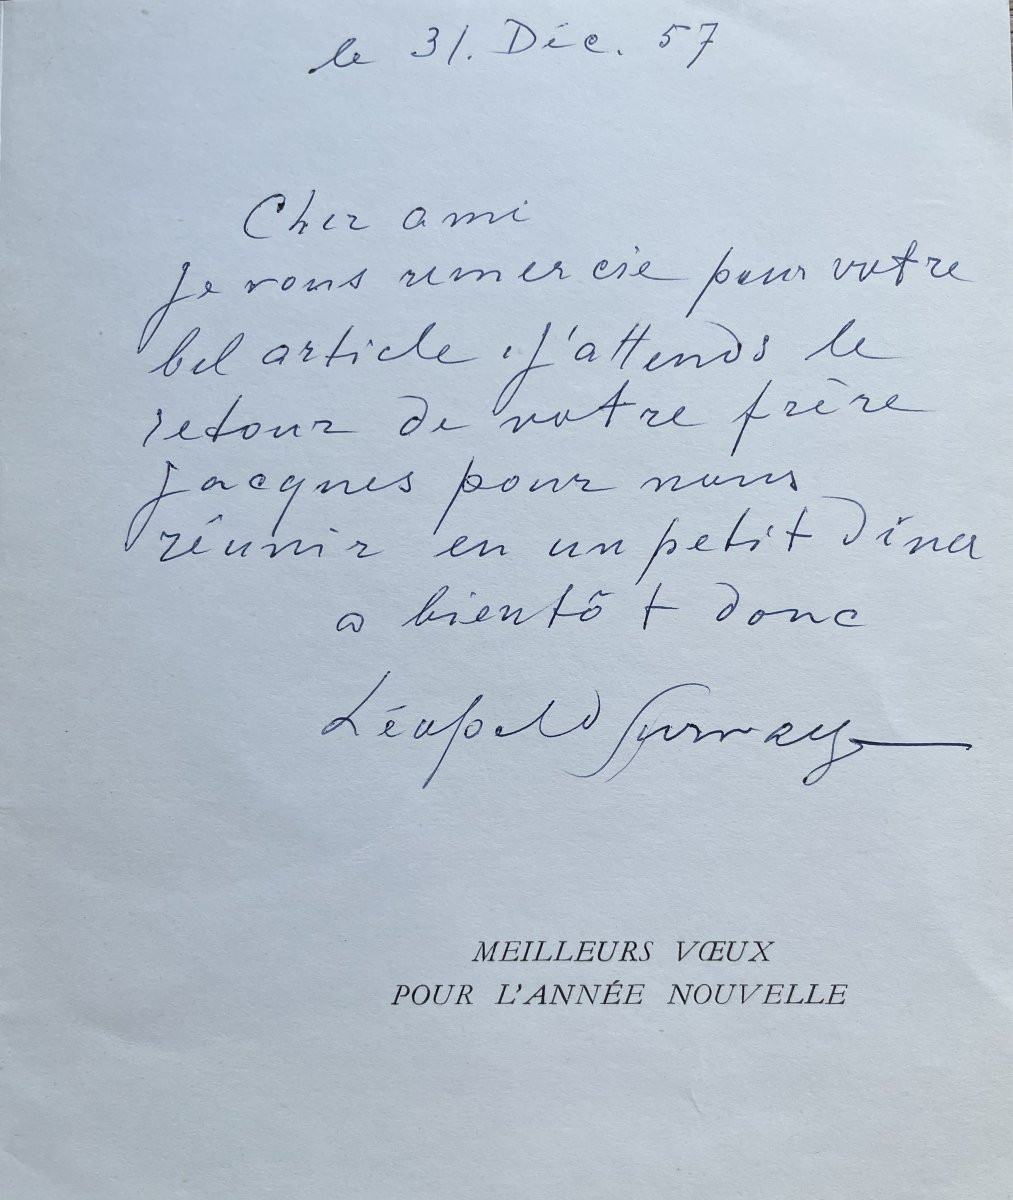 le 31. Déc. 57
Cher ami
Je vous remercie pour votre
bel article. J'attends le
retour de votre frère
Jacques pour nous
réunir en un petit dîner
a bientôt donc
Léopold Survage
MEILLEURS VŒUX
POUR L'ANNÉE NOUVELLE